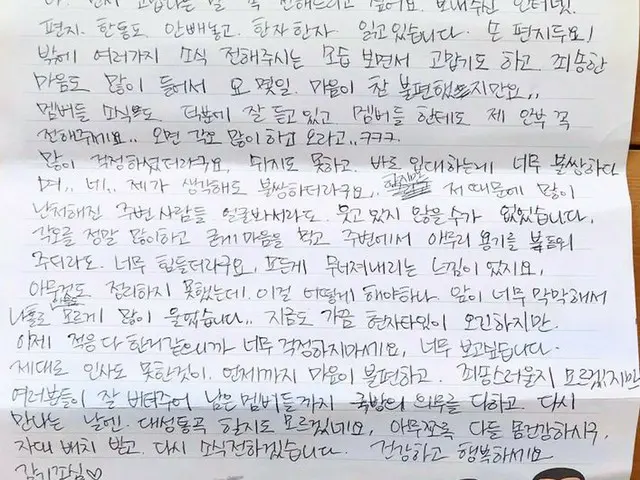 아. 먼저 고맙다는 말 꼭 전해드리고 싶어요. 보내주신 인터넷.
편지. 한통도 안빼놓고. 한자 한자 읽고있습니다. 손 편지두요!
밖에 여러가지 소식 전해주시는 모습 보면서 고맙기도 하고 죄송한
마음도 많이 들어서 요 몇일. 마음이 참 불편했지만요..
멤버들 소식도 덕분에 잘 듣고 있고. 멤버들 한테도 제 안부 꼭
전해주세요.. 오면 각오 많이하고 오라고..ㅋㅋㅋ.
많이 걱정하셨더라구요. 쉬지도 못하고. 바로 입대하는데 너무 불쌍하다
며.. 네.. 제가 생각해도 불쌍하더라구요. 저 때문에 많이
난처해진 주변 사람들 얼굴봐서라도. 웃고 있지 않을수가 없었습니다.
각오를 정말 많이하고 굳게 마음을 먹고 주변에서 아무리 용기를 북돋워
주더라도. 너무 힘들더라구요. 모든게 무너져내리는 느낌이 있지요.
아무것도 정리하지 못했는데. 이걸 어떻게 해야하나. 앞이 너무 막막해서
나홀로 모르게 많이 울었습니다.. 지금도 가끔 현자타임이 오긴하지만.
이제 적응 다 한거같으니까 너무 걱정하지마세요. 너무 보고싶습니다.
제대로 인사도 못한것이. 언제까지 마음이 불편하고. 죄송스러울지 모르겠지만
여러분들이 잘 버텨주어 남은 멤버들까지 국방의 의무를 다하고. 다시
만나는 날엔. 대성통곡 할지도 모르겠네요. 아무쪼록 다들 몸건강하시구.
자대 배치 받고. 다시 소식전하겠습니다. 건강하고 행복하세요
감기조심♡